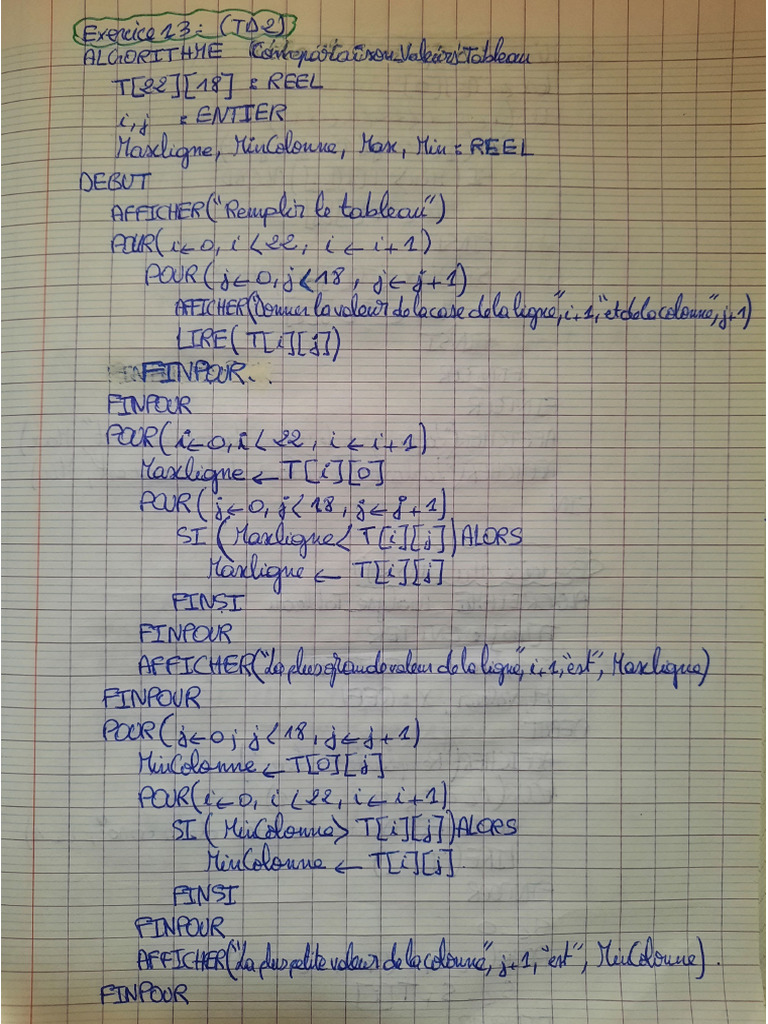 Exercice 13: (TD2)
ALGORITHME Comparaison_Valeurs_Tableau
T[22][18] : REEL
i,j : ENTIER
Maxligne, MinColonne, Max, Min : REEL
DEBUT
AFFICHER("Remplir le tableau")
POUR(i←0, i<22, i←i+1)
POUR(j←0, j<18, j←j+1)
AFFICHER("Donner la valeur de la case de la ligne", i+1, "et de la colonne", j+1)
LIRE(T[i][j])
FINPOUR
FINPOUR
POUR(i←0, i<22, i←i+1)
Maxligne ← T[i][0]
POUR(j←0, j<18, j←j+1)
SI (Maxligne< T[i][j])ALORS
Maxligne ← T[i][j]
FINSI
FINPOUR
AFFICHER("La plus grande valeur de la ligne", i+1, "est", Maxligne)
FINPOUR
POUR(j←0; j<18, j←j+1)
MinColonne ← T[0][j]
POUR(i←0, i<22, i←i+1)
SI (MinColonne> T[i][j])ALORS
MinColonne ← T[i][j]
FINSI
FINPOUR
AFFICHER("La plus petite valeur de la colonne", j+1, "est", MinColonne).
FINPOUR